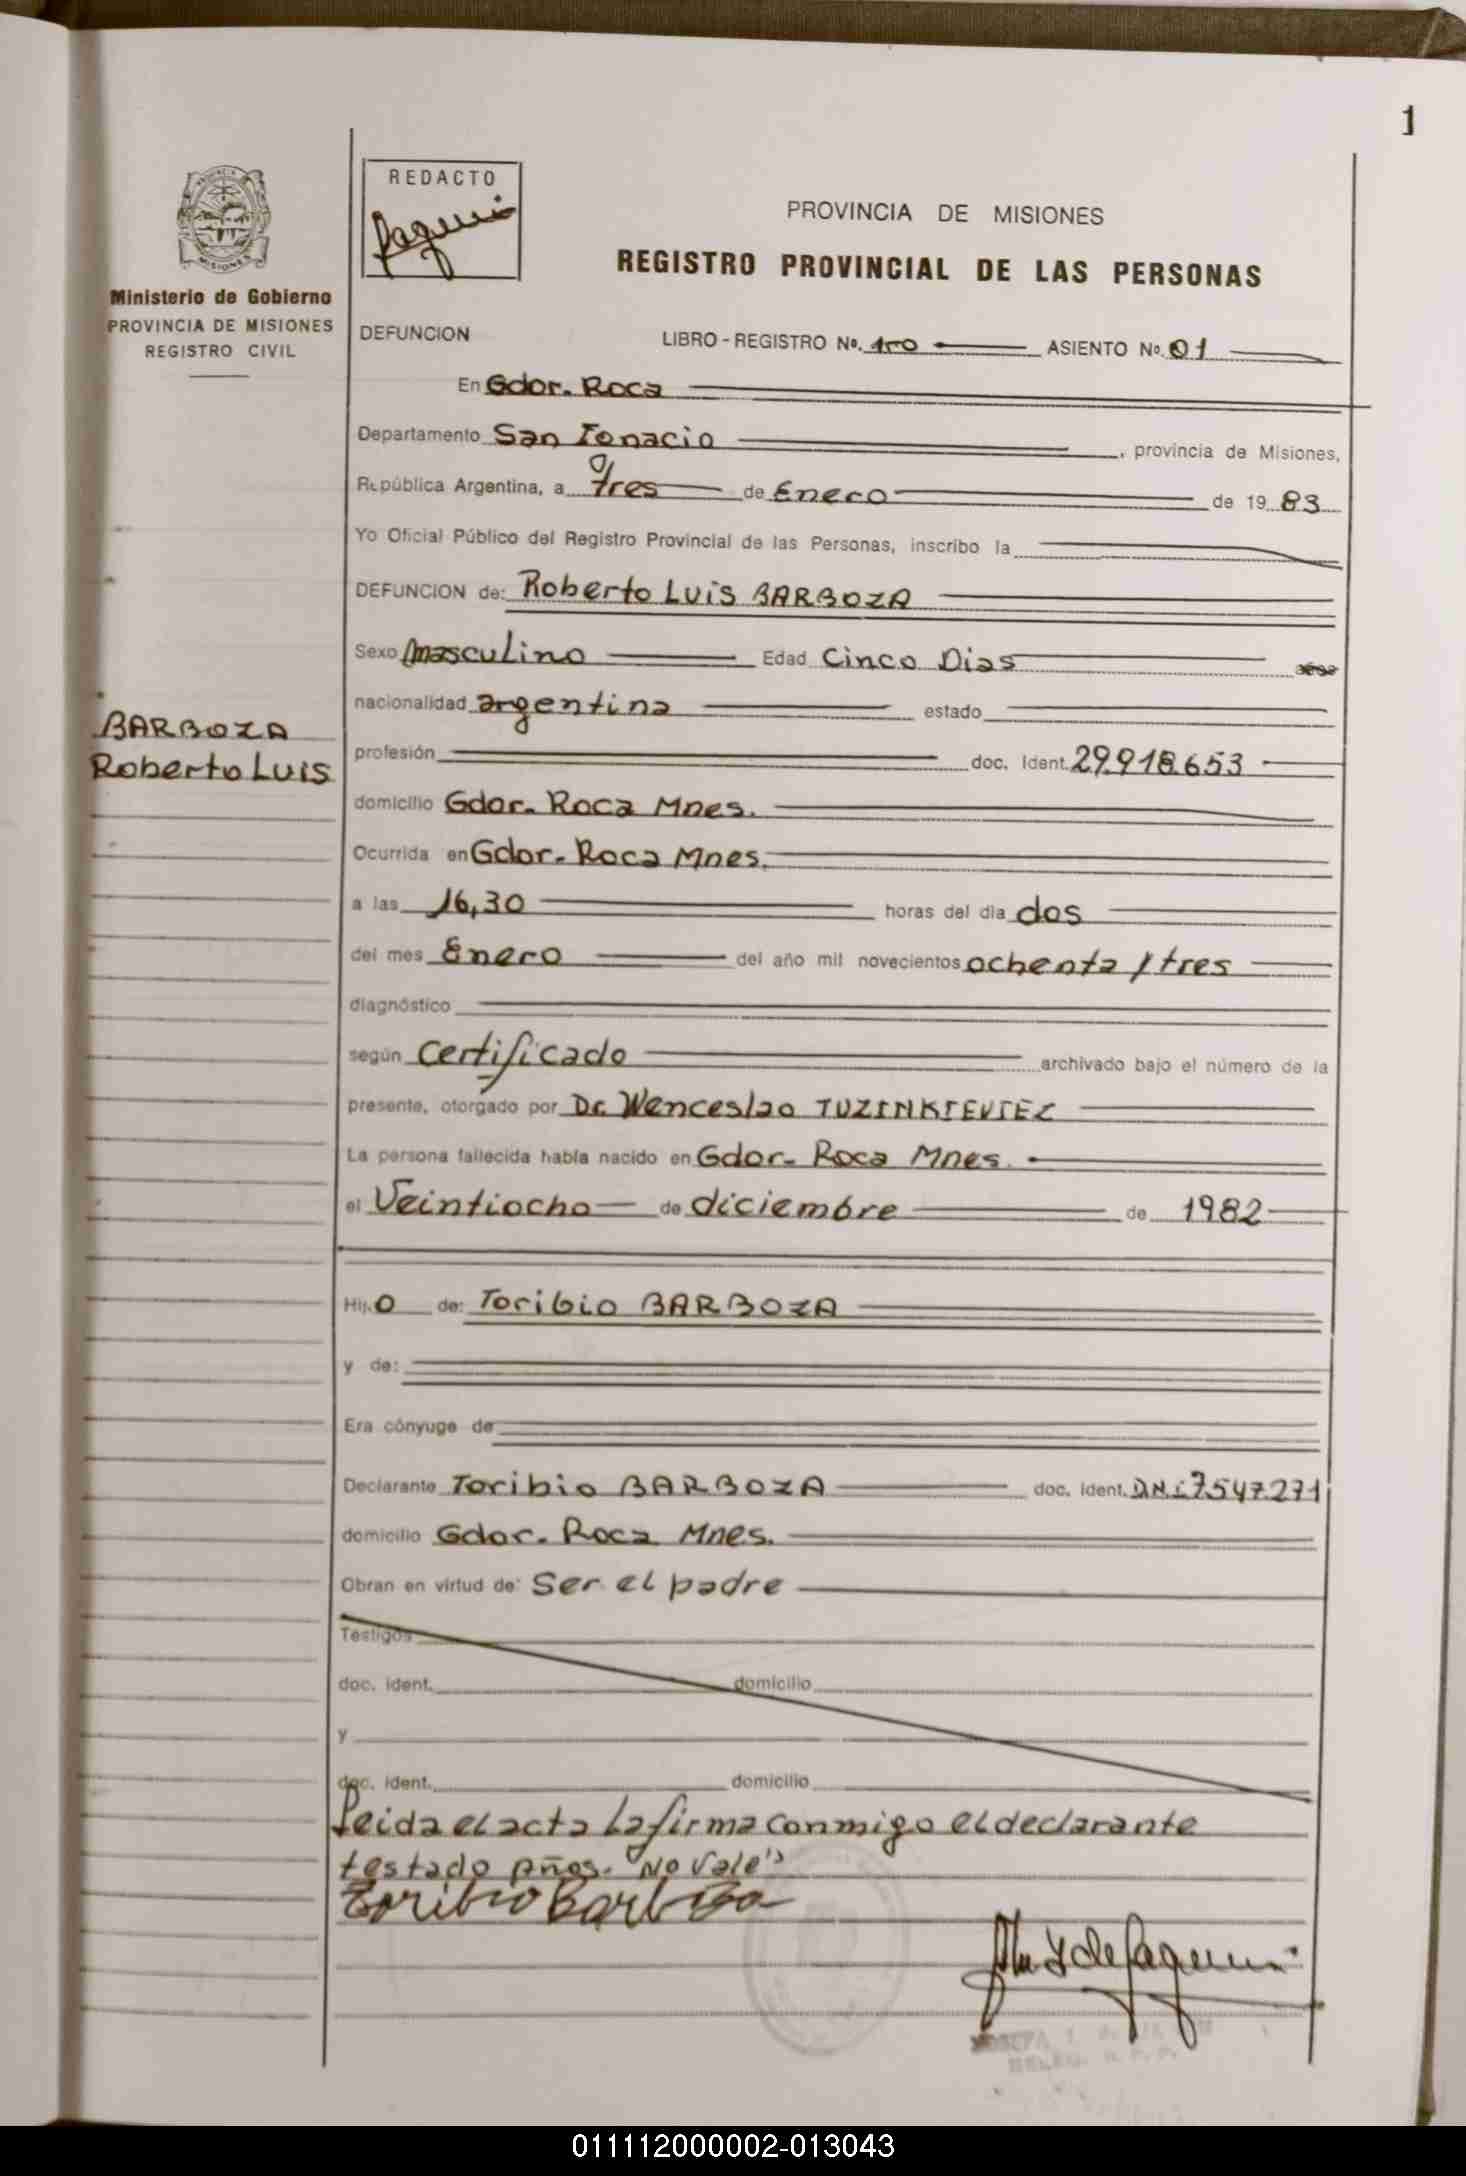 1
REDACTO
PROVINCIA DE MISIONES
REGISTRO PROVINCIAL DE LAS PERSONAS
Ministerio de Gobierno
PROVINCIA DE MISIONES
REGISTRO CIVIL
DEFUNCION LIBRO - REGISTRO Nº. 1ro ASIENTO Nº. 01
En Gdor. Roca
Departamento San Ignacio, provincia de Misiones,
República Argentina, a tres de Enero de 1983
Yo Oficial Público del Registro Provincial de las Personas, inscribo la
DEFUNCION de: Roberto Luis BARBOZA
Sexo masculino Edad Cinco Dias
nacionalidad argentina estado
BARBOZA
Roberto Luis
profesión doc. Ident. 29.918.653
domicilio Gdor. Roca Mnes.
Ocurrida en Gdor. Roca Mnes.
a las 16,30 horas del día dos
del mes Enero del año mil novecientos ochenta y tres
diagnóstico
según Certificado archivado bajo el número de la
presente, otorgado por Dr. Wenceslao TUZINKIEVIEZ
La persona fallecida había nacido en Gdor. Roca Mnes.
el Veintiocho de diciembre de 1982
Hij.o de: Toribio BARBOZA
y de:
Era cónyuge de
Declarante Toribio BARBOZA doc. ident. D.N.i 7.547.271
domicilio Gdor. Roca Mnes.
Obran en virtud de: Ser el padre
Testigos
doc. ident. domicilio
y
doc. ident. domicilio
Leida el acta la firma conmigo el declarante
testado años. "No vale"
Toribio Barboza
011112000002-013043